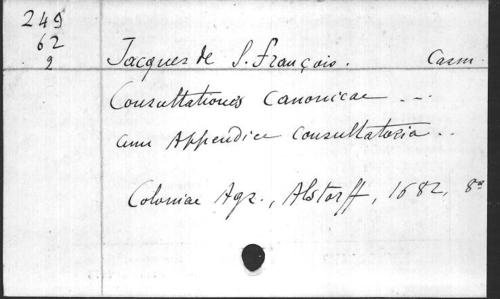 249
62
2
Jacques de S. François. Carm.
Consultationes Canonicae ...
cum Appendice consultatoria ..
Coloniae Agr., Alstorff, 1682, 8º